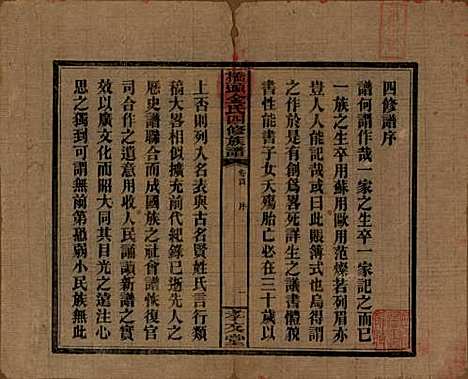 四修譜序
譜何謂作哉一家之生卒一家記之而已
一族之生卒用蘇用歐用范燦若列眉亦
豈人人能記哉然此賬簿式也烏得謂
之作於是有創為畧死詳生之議書體貌
書性能書子女夭殤胎亡必在三十歲以
橋頭金氏四修族譜
卷首
序
一
孝友堂
上否則列入名表與古名賢姓氏言行類
稿大畧相似擴充前代紀錄已逝先人之
歷史譜聯合而成國族之社會譜恢復官
司合作之遺意用收人民誦讀新譜之實
效以廣文化而昭大同其目光之遠注心
思之巨可謂無前第恐弱小民族無此